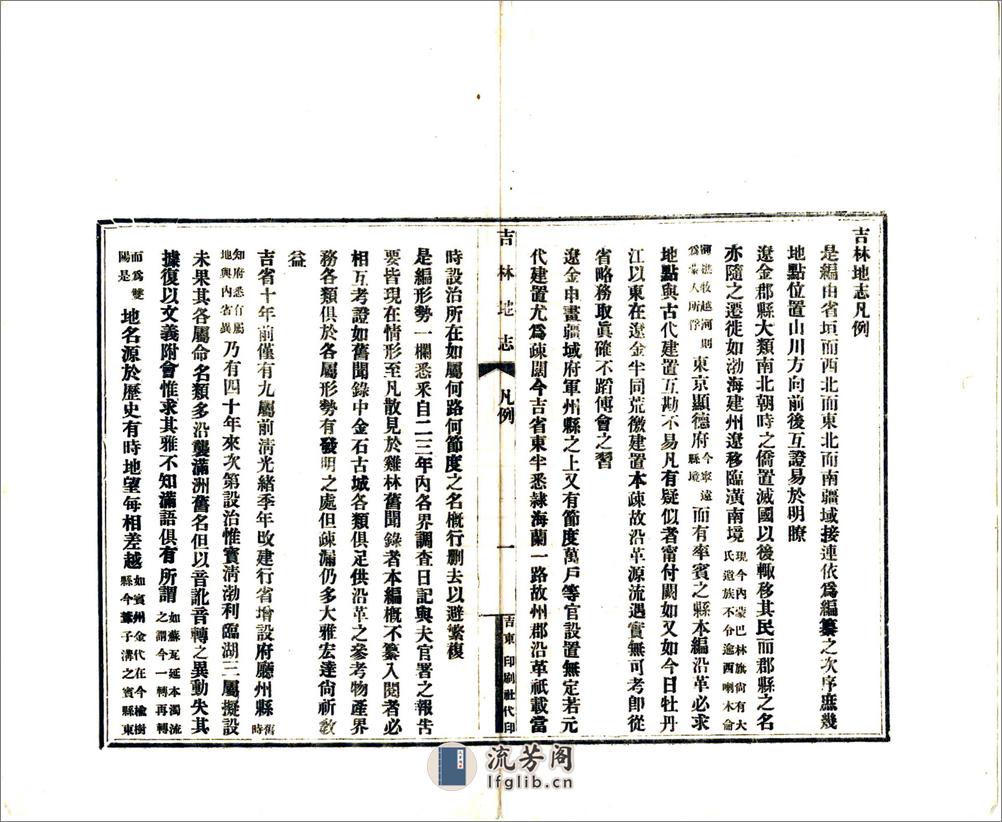 吉林地志凡例
是編由省垣而西北而東北而南疆域接連依爲編纂之次序庶幾
地點位置山川方向前後互證易於明瞭
遼金郡縣大類南北朝時之僑置滅國以後輙移其民而郡縣之名
亦隨之遷徙如渤海建州遼移臨潢南境現今內蒙巴林旗尙有大氏遺族不分逾西喇木侖
河漁牧越河則爲蒙人所浮東京顯德府今寧遠縣境而有率賓之縣本編沿革必求
地點與古代建置互勘不易凡有疑似者甯付闕如又如今日牡丹
江以東在遼金半同荒徼建置本疎故沿革源流遇實無可考卽從
省略務取眞確不蹈傅會之習
遼金申畫疆域府軍州縣之上又有節度萬戶等官設置無定若元
代建置尤爲疎闊今吉省東半悉隸海蘭一路故州郡沿革祇載當
吉林地志
凡例
一
吉東印刷社代印
時設治所在如屬何路何節度之名槪行删去以避繁複
是編形勢一欄悉釆自二三年內各界調查日記與夫官署之報告
要皆現在情形至凡散見於雞林舊聞錄者本編槪不纂入閱者必
相互考證如舊聞錄中金石古城各類俱足供沿革之參考物產界
務各類俱於各屬形勢有發明之處但疎漏仍多大雅宏達尙祈敎
益
吉省十年前僅有九屬前淸光緒季年改建行省增設府廳州縣舊時
知府悉有屬地與內省異乃有四十年來次第設治惟賓淸渤利臨湖三屬擬設
未果其各屬命名類多沿襲滿洲舊名但以音訛音轉之異動失其
據復以文義附會惟求其雅不知滿語俱有所謂如蘇瓦延本濁流之謂今一轉再轉
而爲雙陽是地名源於歷史有時地望每相差越如賓州金代在今榆樹縣今葦子溝之賓縣東
流芳阁
lfglib.cn